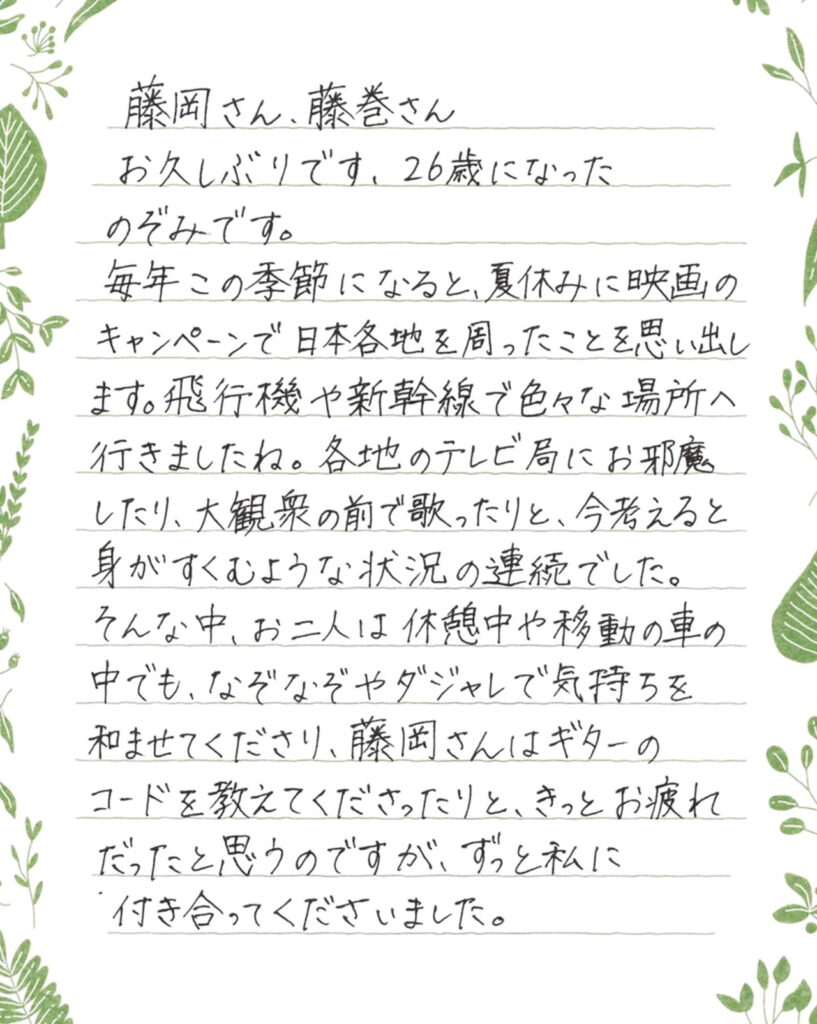 藤岡さん、藤巻さん
お久しぶりです、26歳になった
のぞみです。
毎年この季節になると、夏休みに映画の
キャンペーンで日本各地を周ったことを思い出し
ます。飛行機や新幹線で色々な場所へ
行きましたね。各地のテレビ局にお邪魔
したり、大観衆の前で歌ったりと、今考えると
身がすくむような状況の連続でした。
そんな中、お二人は休憩中や移動の車の
中でも、なぞなぞやダジャレで気持ちを
和ませてくださり、藤岡さんはギターの
コードを教えてくださったりと、きっとお疲れ
だったと思うのですが、ずっと私に
付き合ってくださいました。